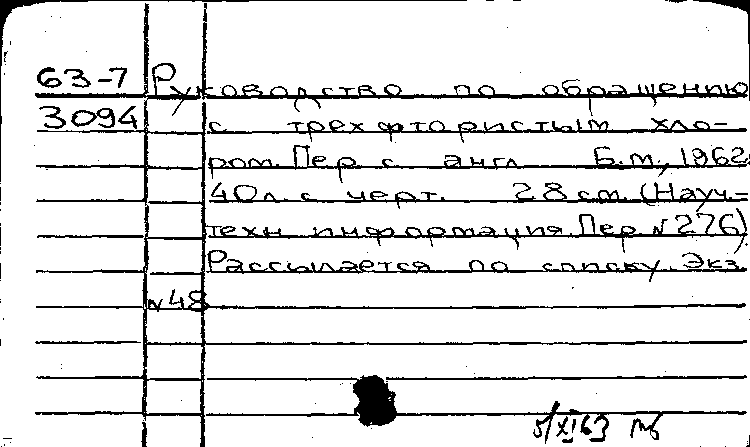 63-7 Руководство по обращению
3094 с трехфтористым хло-
ром. Пер. с англ Б.м., 1962
40л. с черт. 28 см. (Науч.-
техн информация. Пер №276)
Рассылается по списку. Экз.
№48
5/XI63